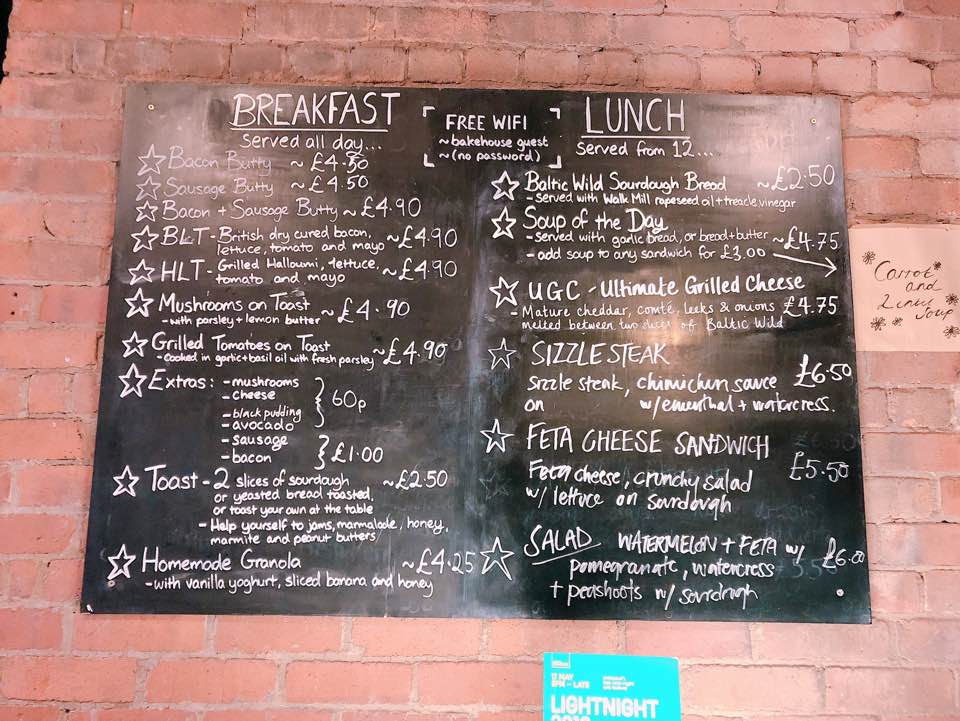 BREAKFAST
Served all day...
Bacon Butty ~ £4.50
Sausage Butty ~ £4.50
Bacon + Sausage Butty ~ £4.90
BLT - British dry cured bacon,
lettuce, tomato and mayo ~£4.90
HLT - Grilled Halloumi, lettuce,
tomato and mayo ~£4.90
Mushrooms on Toast
- with parsley + lemon butter ~ £4.90
Grilled Tomatoes on Toast
- Cooked in garlic + basil oil with fresh parsley ~£4.90
Extras: - mushrooms
- cheese
- black pudding
- avocado
60p
- sausage
- bacon
£1.00
Toast - 2 slices of sourdough ~£2.50
or yeasted bread toasted,
or toast your own at the table
- Help yourself to jams, marmalade, honey,
marmite and peanut butters
Homemade Granola ~£4.25
- with vanilla yoghurt, sliced banana and honey
FREE WIFI
~ bakehouse guest
~ (no password)
LUNCH
Served from 12...
Baltic Wild Sourdough Bread ~£2.50
- Served with Walk Mill rapeseed oil + treacle vinegar
Soup of the Day
- Served with garlic bread, or bread + butter ~£4.75
- add soup to any sandwich for £3.00
UGC - Ultimate Grilled Cheese
- Mature cheddar, comté, leeks & onions £4.75
melted between two slices of Baltic Wild
SIZZLE STEAK
sizzle steak, chimichurri sauce £6.50
on w/ ementhal + watercress.
FETA CHEESE SANDWICH
Feta cheese, crunchy salad £5.50
w/ lettuce on sourdough
SALAD WATERMELON + FETA w/ £6.00
pomegranate, watercress
+ peashoots w/ sourdough
Carrot
and
Soup
MAY
LIGHTNIGHT